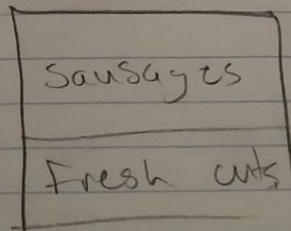 Sausages
Fresh cuts